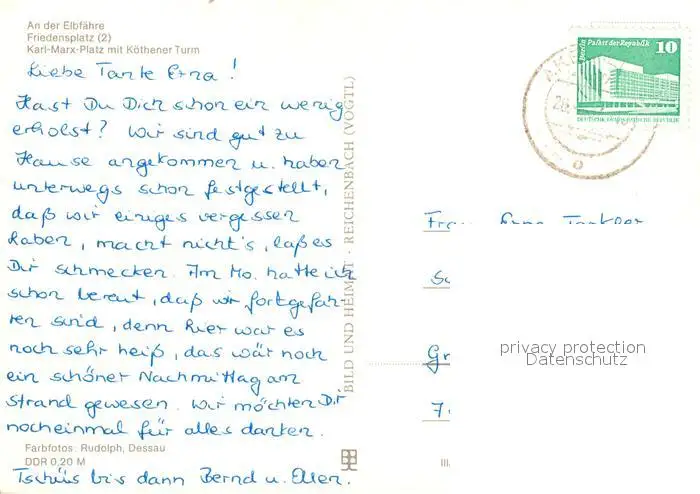 An der Elbfähre
Friedensplatz (2)
Karl-Marx-Platz mit Köthener Turm
Liebe Tante Erna!
Hast Du Dich schon ein wenig
erholst? Wir sind gut zu
Hause angekommen u. haben
unterwegs schon festgestellt,
daß wir einiges vergessen
haben, macht nicht's, laß es
Dir schmecken. Am Mo. hatte ich
schon bereut, daß wir fortgefah-
ren sind, denn hier war es
noch sehr heiß, das wär noch
ein schöner Nachmittag am
Strand gewesen. Wir möchten Dir
nocheinmal für alles danken.
Farbfotos: Rudolph, Dessau
DDR 0,20 M
Tschüs bis dann Bernd u. Ellen.
BILD UND HEIMAT · REICHENBACH (VOGTL)
III
Berlin Palast der Republik
10
DEUTSCHE DEMOKRATISCHE REPUBLIK
Erna
privacy protection
Datenschutz